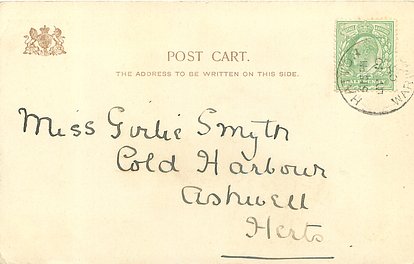 POST CART.
THE ADDRESS TO BE WRITTEN ON THIS SIDE.
Miss Girlie Smyth
Cold Harbour
Ashwell
Herts